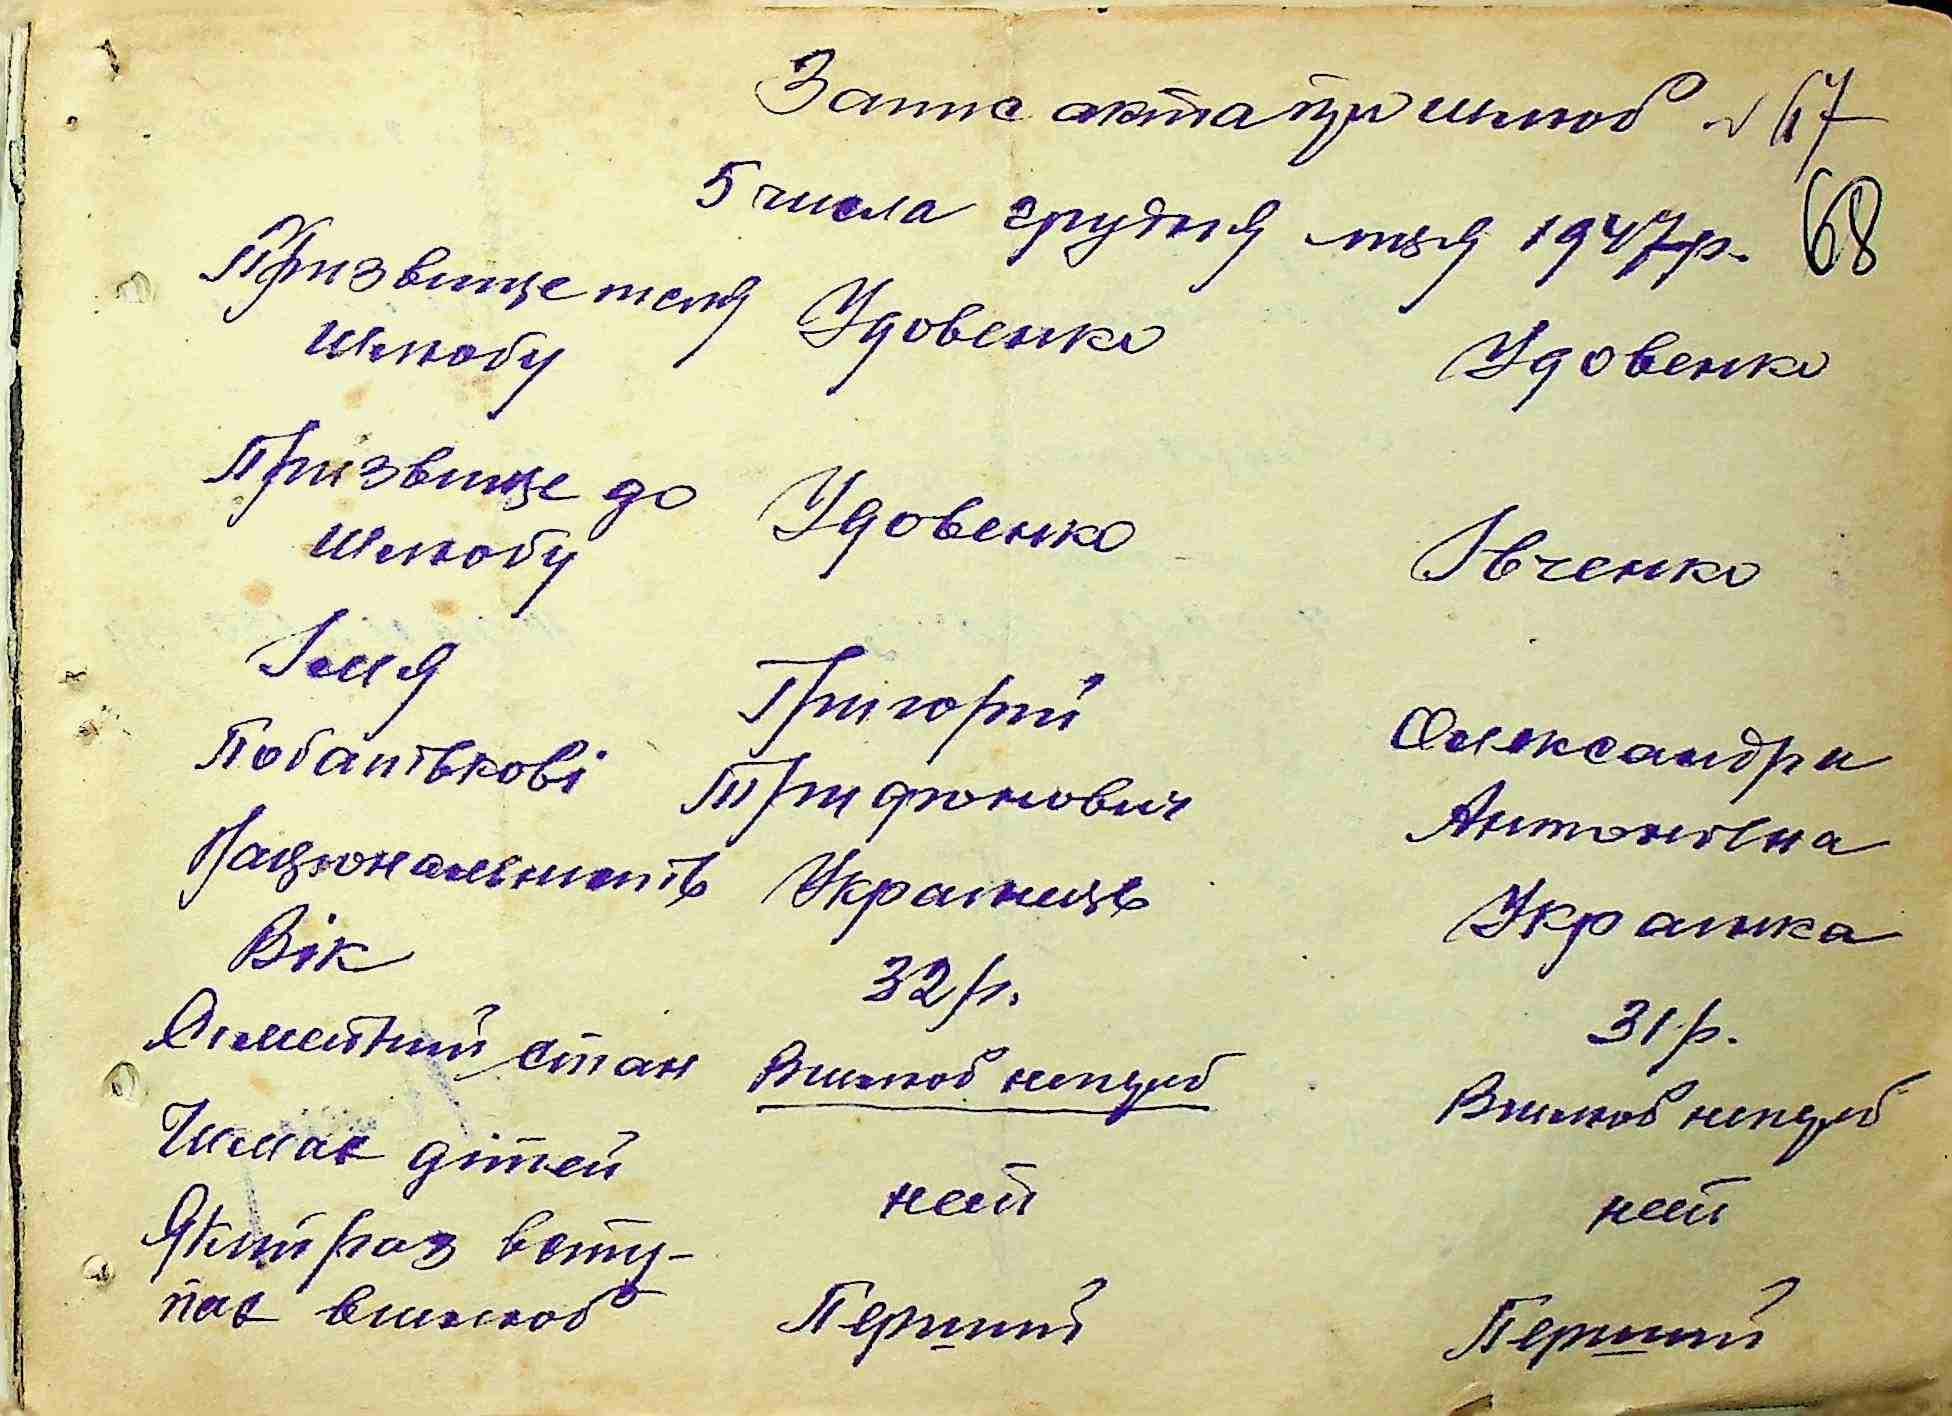 Запис акта про шлюб № 67
68
5 числа грудня м-ця 1947 р.
Призвище після шлюбу Удовенко Удовенко
Призвище до шлюбу Удовенко Івченко
Імя Григорій Олександра
Побатькові Трифонович Антонівна
Національність Українець Українка
Вік 32 р. 31 р.
Сімейний стан Вшлюб неперб Вшлюб неперб
Чи має дітей неті неті
Який раз всту-
пає вшлюб Перший Перший